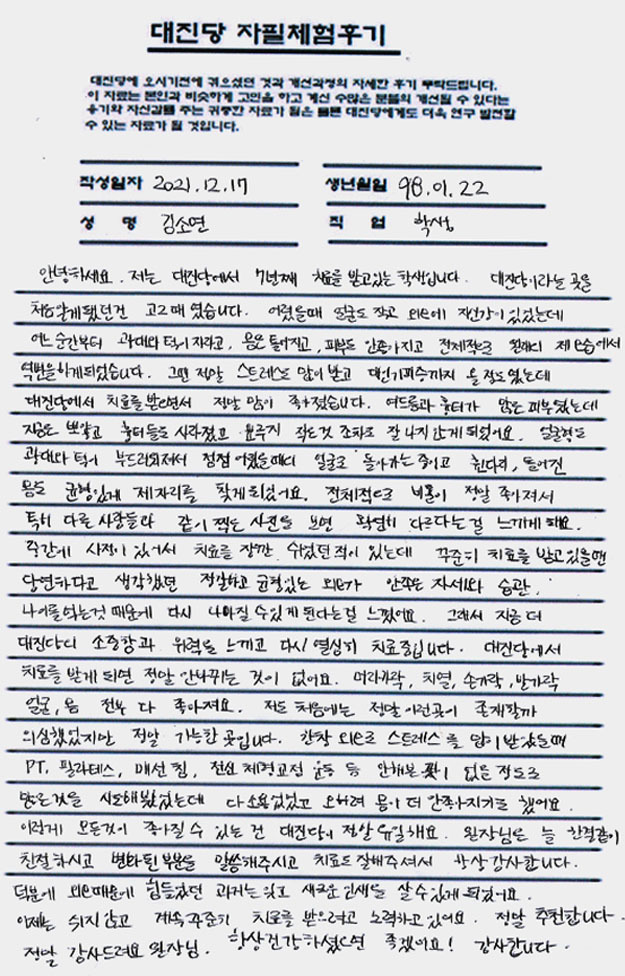 대진당 자필체험후기
대진당에 오시기전에 겪으셨던 것과 개선과정의 자세한 후기 부탁드립니다.
이 자료는 본인과 비슷하게 고민을 하고 계신 수많은 분들의 개선될 수 있다는
용기와 자신감을 주는 귀중한 자료가 됨은 물론 대진당에게도 더욱 연구 발전할
수 있는 자료가 될 것입니다.
작성일자 2021.12.17 생년월일 98.01.22
성 명 김소연 직 업 학생
안녕하세요. 저는 대진당에서 7년째 치료를 받고있는 학생입니다. 대진당이라는 곳을
처음알게됐던건 고2때 였습니다. 어렸을때 얼굴도 작고 외모에 자신감이 있었는데
어느 순간부터 광대와 턱이 자라고, 몸은 틀어지고, 피부도 안좋아지고 전체적으로 원래의 제 모습에서
역변을하게되었습니다. 그땐 정말 스트레스도 많이 받고 대인기피증까지 올 정도였는데
대진당에서 치료를 받으면서 정말 많이 좋아졌습니다. 여드름과 흉터가 많은 피부였는데
지금은 뽀얗고 흉터들도 사라졌고 뾰루지 작은것 조차도 잘 나지 않게 되었어요. 얼굴형도
광대와 턱이 부드러워져서 점점 어렸을때의 얼굴로 돌아가는 중이고 휜다리, 틀어진
몸도 균형있게 제자리를 찾게되었어요. 전체적으로 비율이 정말 좋아져서
특히 다른 사람들과 같이 찍은 사진을 보면 확연히 다르다는걸 느끼게 돼요.
중간에 사정이 있어서 치료를 잠깐 쉬었던적이 있는데 꾸준히 치료를 받고있을땐
당연하다고 생각했던 정갈하고 균형있는 외모가 안좋은 자세와 습관,
나이를먹는것 때문에 다시 나빠질 수있게 된다는걸 느꼈어요. 그래서 지금 더
대진당의 소중함과 위력을 느끼고 다시 열심히 치료중입니다. 대진당에서
치료를 받게 되면 정말 안바뀌는 것이 없어요. 머리카락, 치열, 손가락, 발가락
얼굴, 몸 전부 다 좋아져요. 저도 처음에는 정말 이런곳이 존재할까
의심했었지만 정말 가능한 곳입니다. 한창 외모로 스트레스를 많이 받았을때
PT, 필라테스, 매선침, 전신 체형교정 운동 등 안해본 것이 없을 정도로
많은것을 시도해봤었는데 다소용없었고 오히려 몸이 더 안좋아지기도 했어요.
이렇게 모든것이 좋아질 수 있는 건 대진당이 정말 유일해요. 원장님은 늘 한결같이
친절하시고 변화된 부분을 말씀해주시고 치료도 잘해주셔서 항상 감사합니다.
덕분에 외모때문에 힘들었던 과거는 잊고 새로운 인생을 살수있게 되었어요.
이제는 쉬지 않고 계속 꾸준히 치료를 받으려고 노력하고 있어요. 정말 추천합니다.
정말 감사드려요 원장님. 항상건강하셨으면 좋겠어요! 감사합니다.